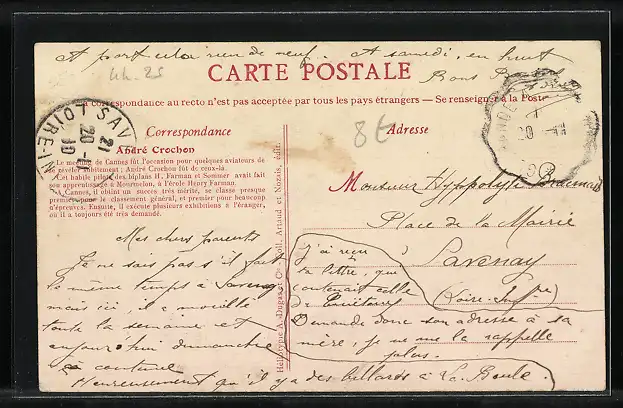 A part cela rien de neuf. A samedi, en huit
Bons
44.25
CARTE POSTALE
La correspondance au recto n'est pas acceptée par tous les pays étrangers — Se renseigner à la Poste
SAVENAY
LOIRE-INF
8E
Correspondance
Adresse
André Crochon
Le meeting de Cannes fût l'occasion pour quelques aviateurs de
se révéler subitement ; André Crochon fût de ceux-là.
Cet habile pilote des biplans H. Farman et Sommer avait fait
son apprentissage à Mourmelon, à l'école Henry Farman.
A Cannes, il obtint un succès très mérité, se classe presque
premier pour le classement général, et premier pour beaucoup
d'épreuves. Ensuite, il exécute plusieurs exhibitions à l'étranger,
où il a toujours été très demandé.
Héliotypie A. Dugas et Cie. Coll. Artaud et Nozais, édit.
Monsieur Hyppolyte
Place de la Mairie
Savenay
(Loire-Infre)
Mes chers parents
Je ne sais pas s'il fait
le même temps à Savenay
mais ici, il a mouillé
toute la semaine et
aujourd'hui dimanche
ça continue
Heureusement qu'il y a des billards à La Baule.
J'ai reçu
ta lettre, que
contenait celle
de
Demande donc son adresse à sa
mère, je ne me la rappelle
plus.